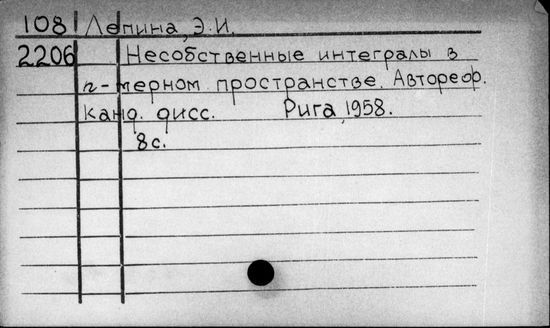 108 Лепина, Э.И.
2206 Несобственные интегралы в
n-мерном пространстве. Автореф.
канд. дисс. Рига, 1958.
8 с.